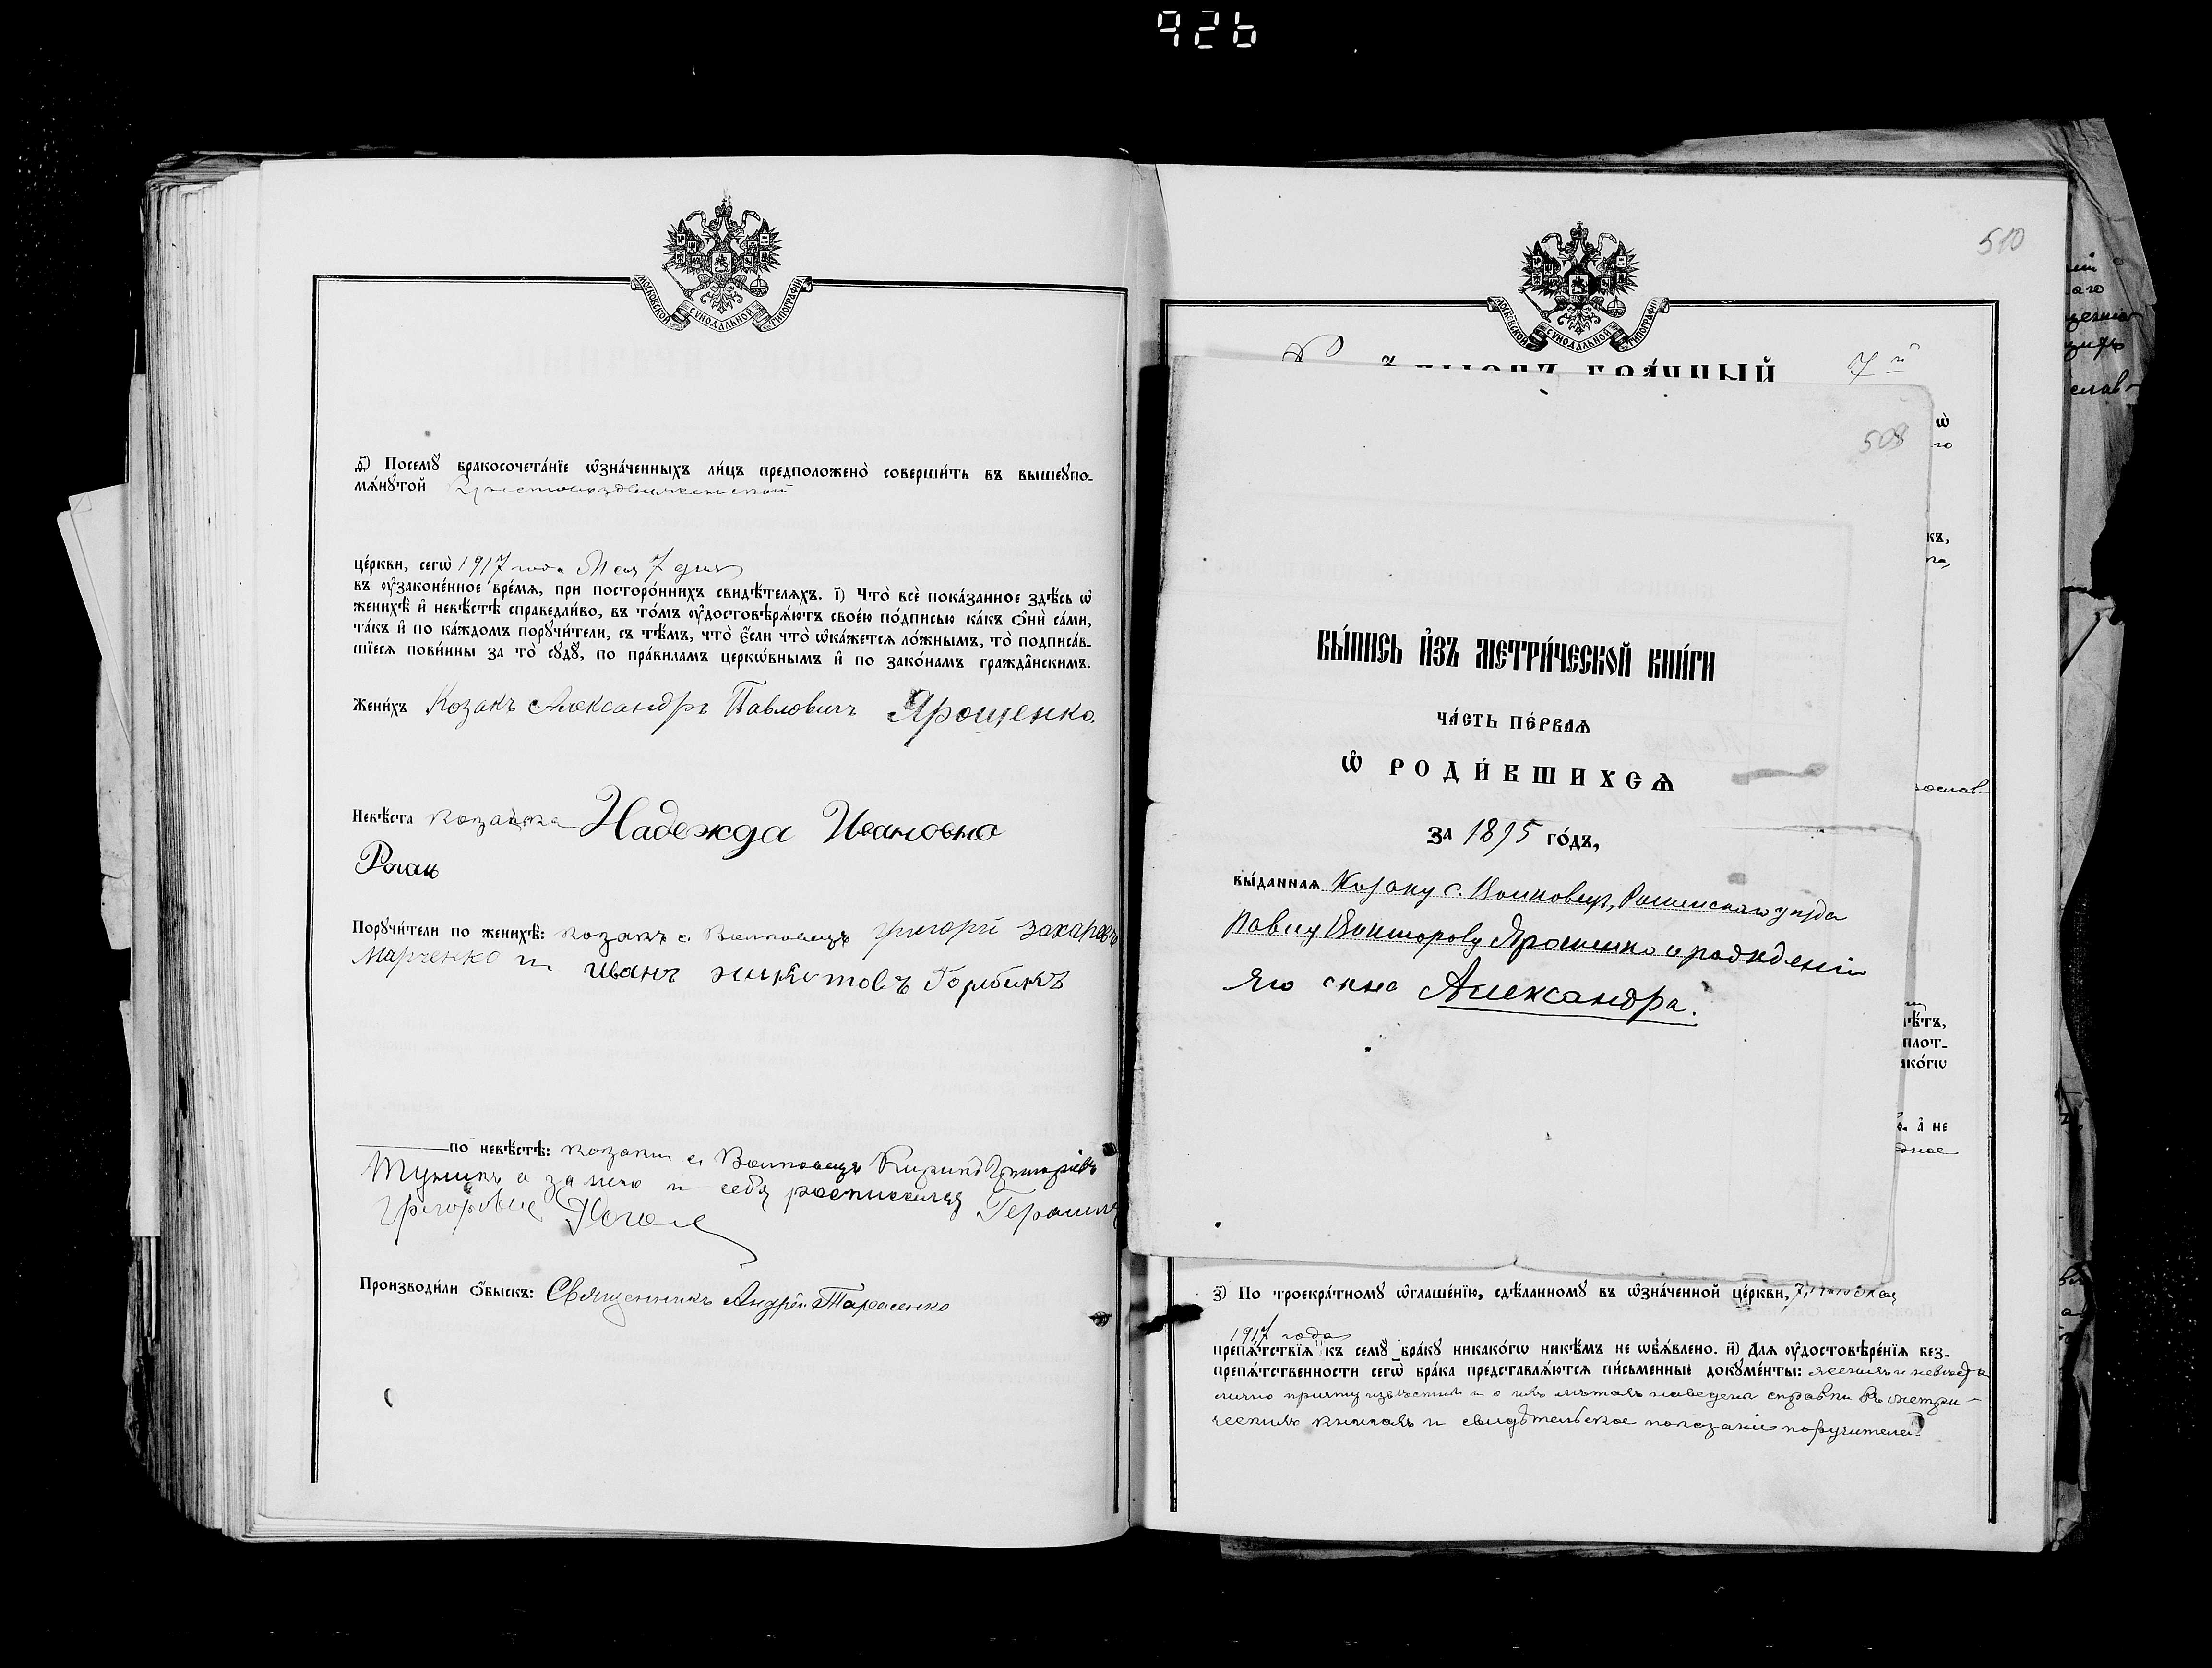 926
МОСКОВСКОЙ СУНОДАЛЬНОЙ ТИПОГРАФІИ
ѳ҃) Посемꙋ̀ бракосочета́нїе ѡ҆зна́ченныхъ ли́цъ предположено̀ соверши́ть въ вышеꙋпо-
мѧ́нꙋтой Крестовоздвиженской
це́ркви, сегѡ̀ 1917 года Мая 7 дня
въ ᲂу҆законе́нное вре́мѧ, при посторо́ннихъ свидѣ́телѧхъ. і҃) Что̀ всѐ пока́занное здѣ́сь ѡ҆
женихѣ̀ и҆ невѣ́стѣ справедли́во, въ то́мъ ᲂу҆достовѣрѧ́ютъ свое́ю по́дписью ка́къ ѻ҆нѝ са́ми,
та́къ и҆ по ка́ждомъ порꙋчи́тели, съ тѣ́мъ, что̀ є҆́сли что̀ ѡ҆ка́жетсѧ ло́жнымъ, то̀ подписа́в-
шїесѧ пови́нны за то̀ сꙋдꙋ̀, по пра́виламъ церкѡ́внымъ и҆ по зако́намъ гражда̑нскимъ.
Жени́хъ Козакъ Александръ Павловичъ Ярощенко.
Невѣ́ста козачка Надежда Ивановна
Роган
Порꙋчи́тели по женихѣ̀: козакъ с. Волковецъ Григорій Захаровъ
Марченко и иванъ
по невѣ́стѣ: козаки с. Волковецъ Кирилъ Григоріевъ
а за него и себя росписился Герасим
Григоровъ
Производи́ли ѻ҆́быскъ: Священникъ Андрей Тарасенко
510
МОСКОВСКОЙ СУНОДАЛЬНОЙ ТИПОГРАФІИ
бра́чный 7й
508
Вы́пись и҆зъ метри́ческой кни́ги
ча́сть пе́рваѧ
ѡ҆ роди́вшихсѧ
за 1895 го́дъ,
вы́даннаѧ Козаку с. Волковецъ, Роменскаго уѣзда
Павлу Викторову Ярошенко о рожденіи
его сына Александра.
з҃) По троекра́тномꙋ ѡ҆глаше́нїю, сдѣ́ланномꙋ въ ѡ҆зна́ченной це́ркви, 7,
1917 года
препѧ́тствїѧ къ семꙋ̀ бра́кꙋ никако́гѡ никѣ́мъ не ѡ҆б̾ѧ́влено. и҃) Длѧ ᲂу҆достовѣре́нїѧ без-
препѧ́тственности сегѡ̀ бра́ка представлѧ́ютсѧ пи́сьменные докꙋме́нты: женихъ и невѣста
лично причту извѣстны и о ихъ лѣтахъ наведена справка въ метри-
ческихъ книгахъ и свидѣтельское показаніе поручителей